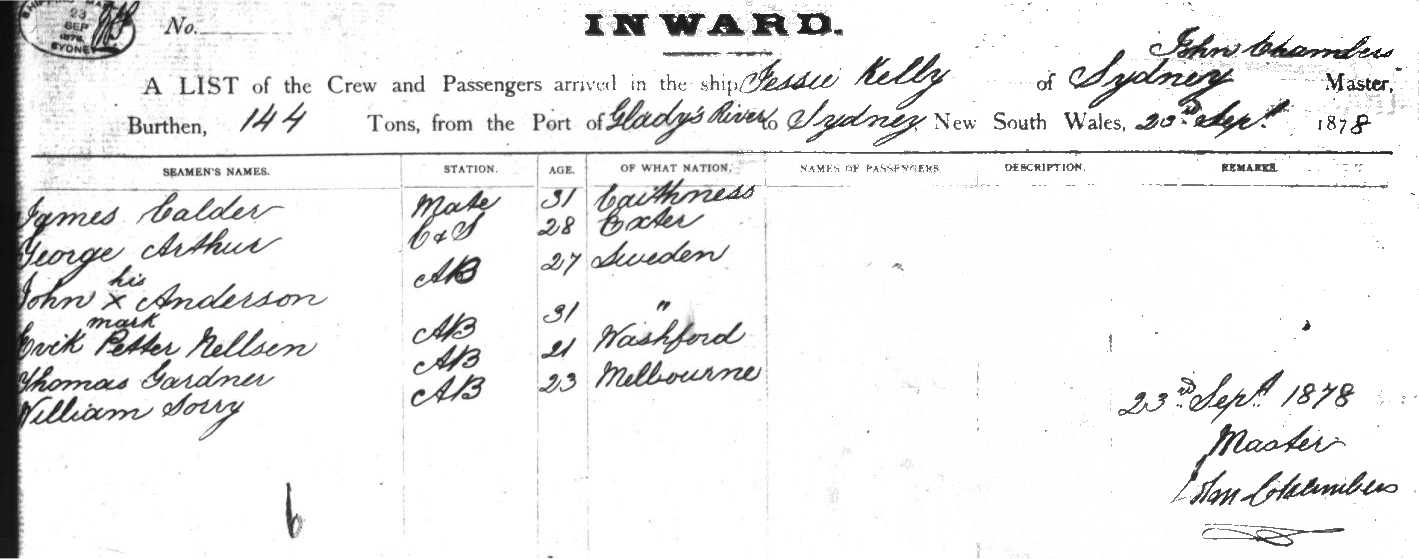 23
SEP
1878
SYDNEY
No.
INWARD.
John Chambers
A LIST of the Crew and Passengers arrived in the ship Jessie Kelly of Sydney Master,
Burthen, 144 Tons, from the Port of Glady's River to Sydney, New South Wales, 23rd Sept. 1878
SEAMEN'S NAMES. STATION. AGE. OF WHAT NATION. NAMES OF PASSENGERS DESCRIPTION. REMARKS.
James Calder Mate 31 Caithness
George Arthur C & S 28 Exter
his
John x Anderson AB 27 Sweden
mark
Evik Petter Nellsen AB 31 "
Thomas Gardner AB 21 Washford
William Sorry AB 23 Melbourne
23rd Sept. 1878
Master
John Chambers
6